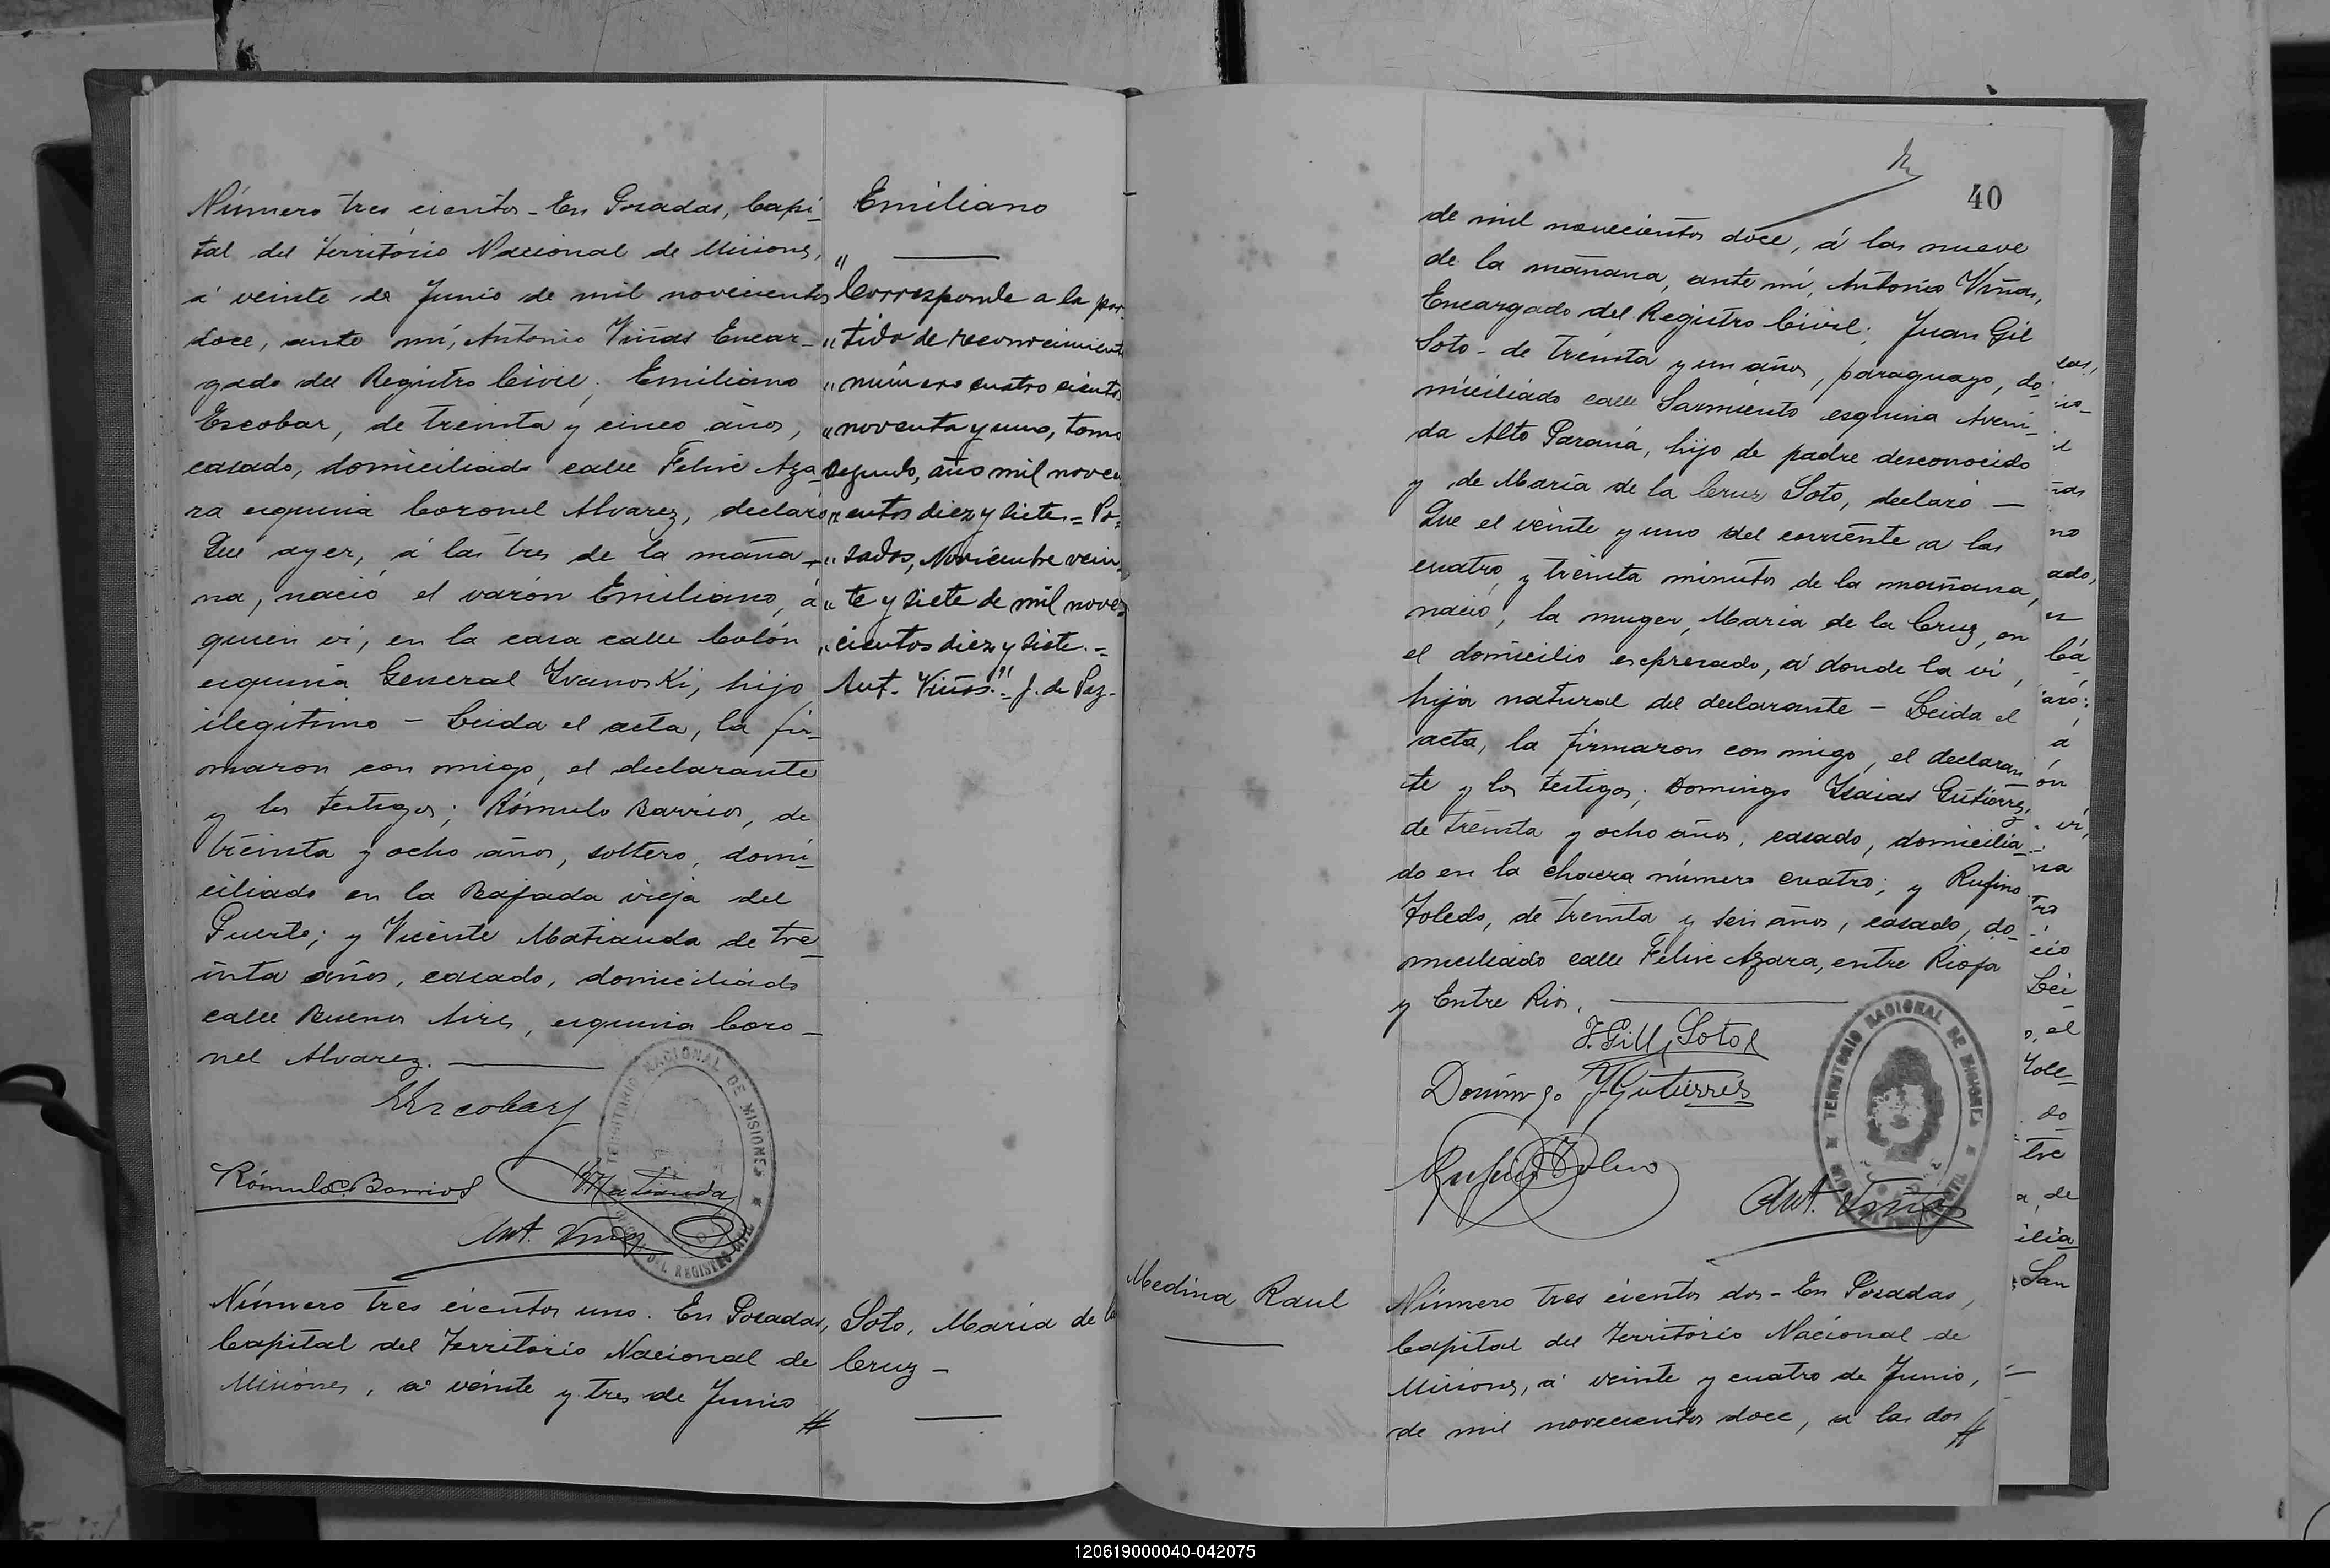 Número tres cientos - En Posadas, Capi-
tal del Territorio Nacional de Misiones,
á veinte de Junio de mil novecientos
doce, ante mí, Antonio Viñas Encar-
gado del Registro Civil; Emiliano
Escobar, de treinta y cinco años,
casado, domiciliado calle Felix Aza-
ra esquina Coronel Alvarez, declaró
Que ayer, á las tres de la maña-
na, nació el varón Emiliano, á
quien ví, en la casa calle Colón
esquina General Ivanoski, hijo
ilegítimo - Leida el acta, la fir-
maron con migo, el declarante
y los testigos; Rómulo Barrios, de
treinta y ocho años, soltero, domi-
ciliado en la Bajada vieja del
Puerto; y Vicente Matiauda de tre-
inta años, casado, domiciliado
calle Buenos Aires, esquina Coro-
nel Alvarez.
EEscobar
Rómulo Barrios
VMatiauda
Ant. Viñas
TERRITORIO NACIONAL DE MISIONES
DEL REGISTRO CIVIL
Número tres cientos uno. En Posadas,
Capital del Territorio Nacional de
Misiones, á veinte y tres de Junio
Emiliano
"
Corresponde a la par-
" tida de reconocimiento
" número cuatro cientos
" noventa y uno, tomo
segundo, año mil noveci-
" entos diez y siete = Po-
" sadas, Noviembre vein-
" te y siete de mil nove-
" cientos diez y siete.-
Ant. Viñas." = J. de Paz-
Soto, María de la
Cruz -
40
de mil novecientos doce, á las nueve
de la mañana, ante mí, Antonio Viñas,
Encargado del Registro Civil; Juan Gil
Soto - de treinta y un años, paraguayo, do-
miciliado calle Sarmiento esquina Aveni-
da Alto Paraná, hijo de padre desconocido
y de María de la Cruz Soto, declaró —
Que el veinte y uno del corriente a las
cuatro y treinta minutos de la mañana,
nació, la muger, María de la Cruz, en
el domicilio expresado, á donde la ví,
hija natural del declarante - Leida el
acta, la firmaron con migo, el declaran-
te y los testigos; Domingo Isaias Gutiérrez,
de treinta y ocho años, casado, domicilia-
do en la chacra número cuatro; y Rufino
Toledo, de treinta y seis años, casado, do-
miciliado calle Felix Azara, entre Rioja
y Entre Rios.
J. Gill Soto
Domingo IGutierres
Rufino Toledo
Ant. Viñas
TERRITORIO NACIONAL DE MISIONES
Medina Raul
Número tres cientos dos - En Posadas,
Capital del Territorio Nacional de
Misiones, á veinte y cuatro de Junio,
de mil novecientos doce, a las dos
120619000040-042075